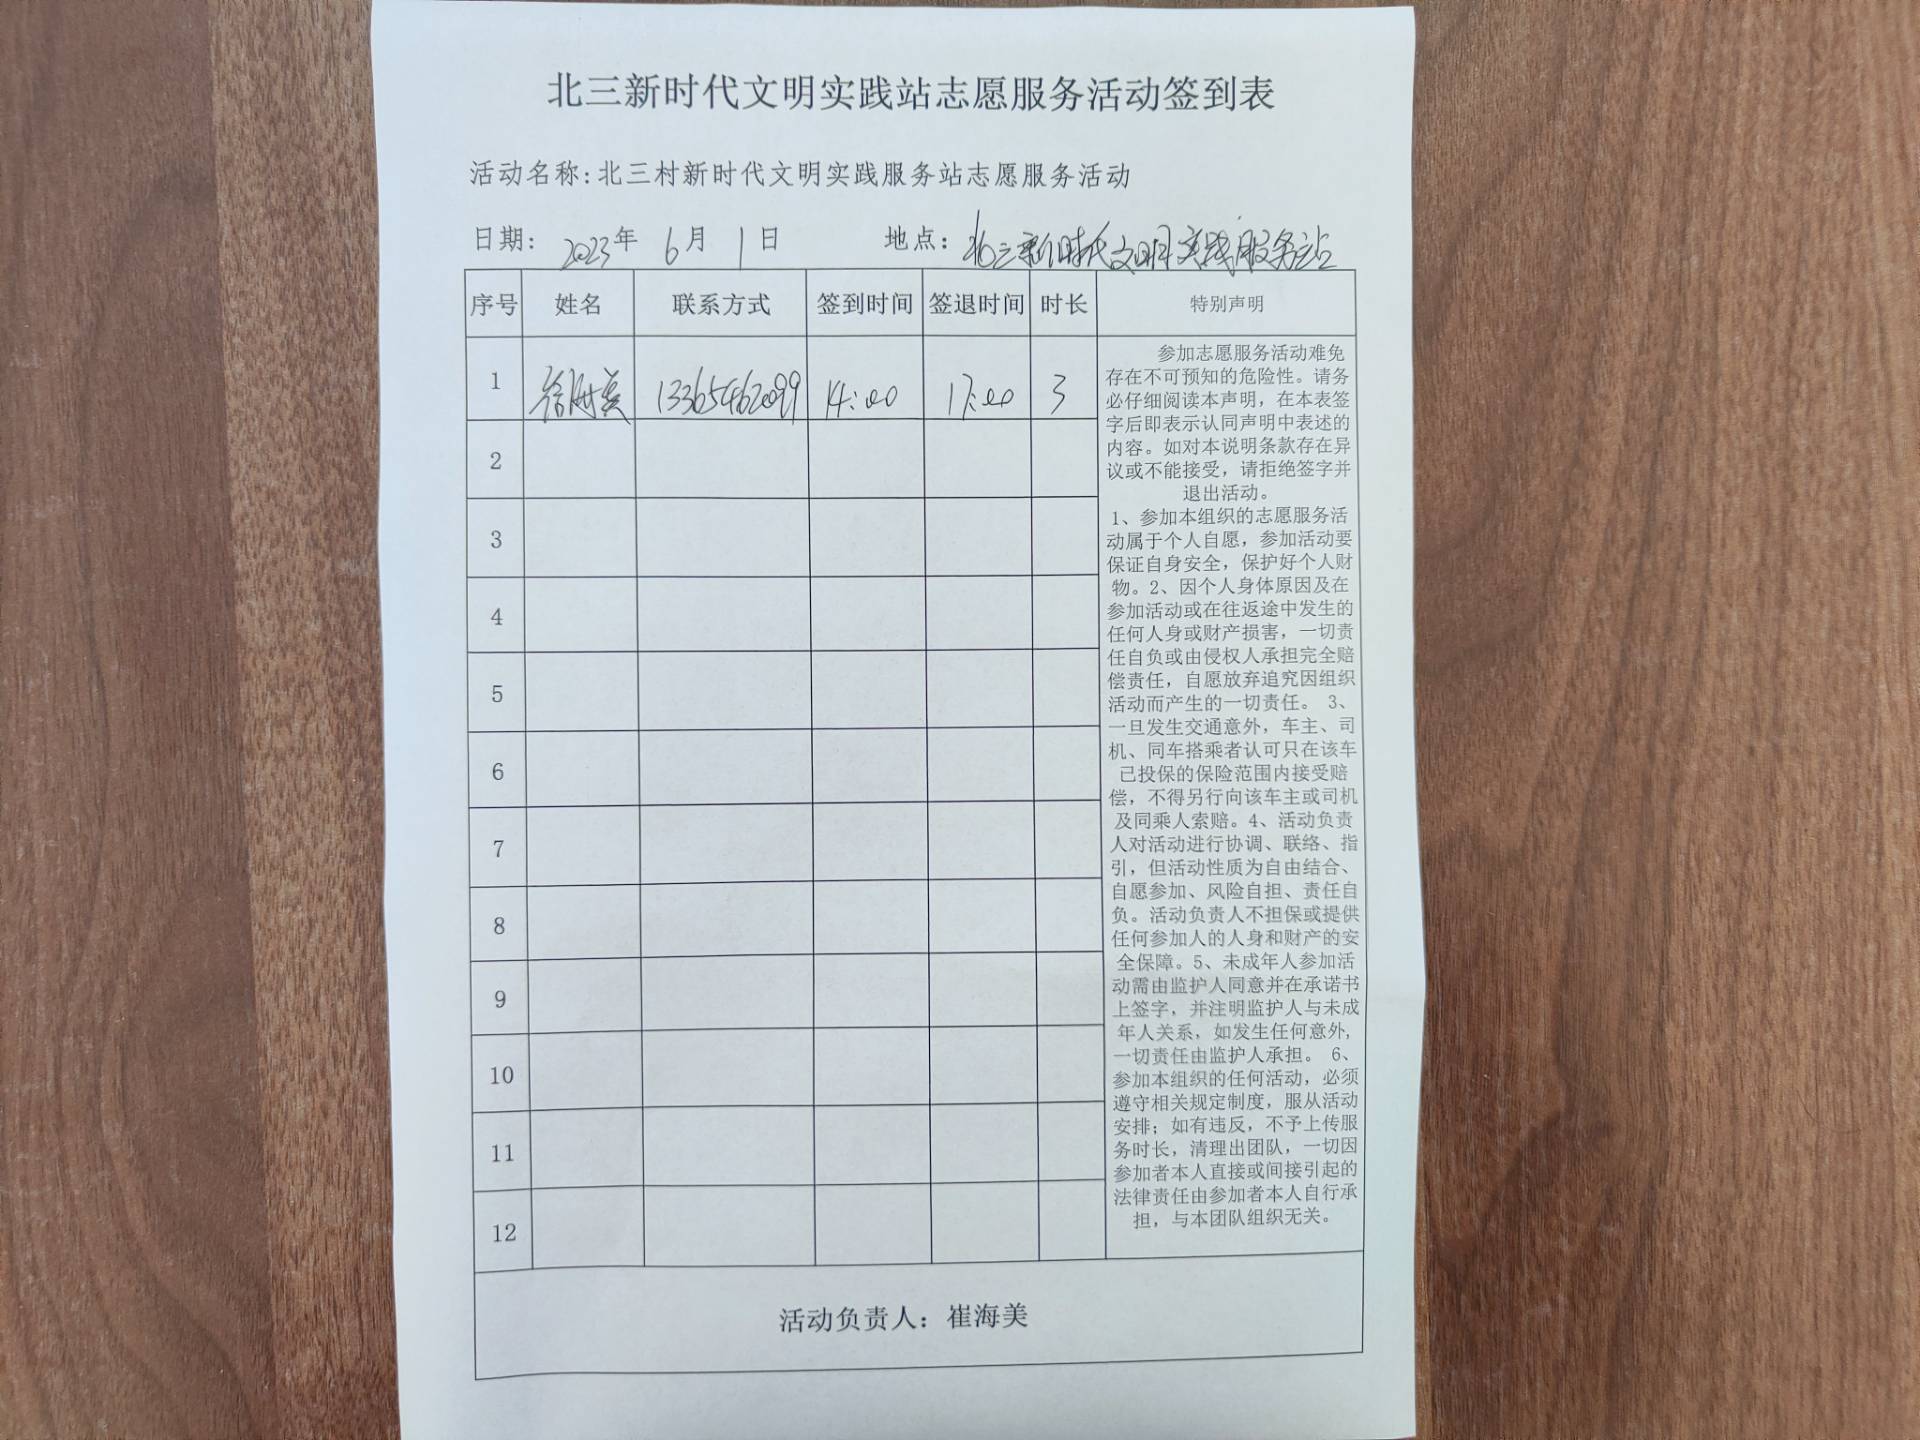 北三新时代文明实践站志愿服务活动签到表
活动名称:北三村新时代文明实践服务站志愿服务活动
日期: 2023年 6月 1日 地点: 北三新时代文明实践服务站
序号 姓名 联系方式 签到时间 签退时间 时长 特别声明
1 徐海英 13365462099 14:00 17:00 3
2
3
4
5
6
7
8
9
10
11
12
参加志愿服务活动难免
存在不可预知的危险性。请务
必仔细阅读本声明，在本表签
字后即表示认同声明中表述的
内容。如对本说明条款存在异
议或不能接受，请拒绝签字并
退出活动。
1、参加本组织的志愿服务活
动属于个人自愿，参加活动要
保证自身安全，保护好个人财
物。2、因个人身体原因及在
参加活动或在往返途中发生的
任何人身或财产损害，一切责
任自负或由侵权人承担完全赔
偿责任，自愿放弃追究因组织
活动而产生的一切责任。 3、
一旦发生交通意外，车主、司
机、同车搭乘者认可只在该车
己投保的保险范围内接受赔
偿，不得另行向该车主或司机
及同乘人索赔。4、活动负责
人对活动进行协调、联络、指
引，但活动性质为自由结合、
自愿参加、风险自担、责任自
负。活动负责人不担保或提供
任何参加人的人身和财产的安
全保障。5、未成年人参加活
动需由监护人同意并在承诺书
上签字，并注明监护人与未成
年人关系，如发生任何意外,
一切责任由监护人承担。 6、
参加本组织的任何活动，必须
遵守相关规定制度，服从活动
安排；如有违反，不予上传服
务时长，清理出团队，一切因
参加者本人直接或间接引起的
法律责任由参加者本人自行承
担，与本团队组织无关。
活动负责人：崔海美